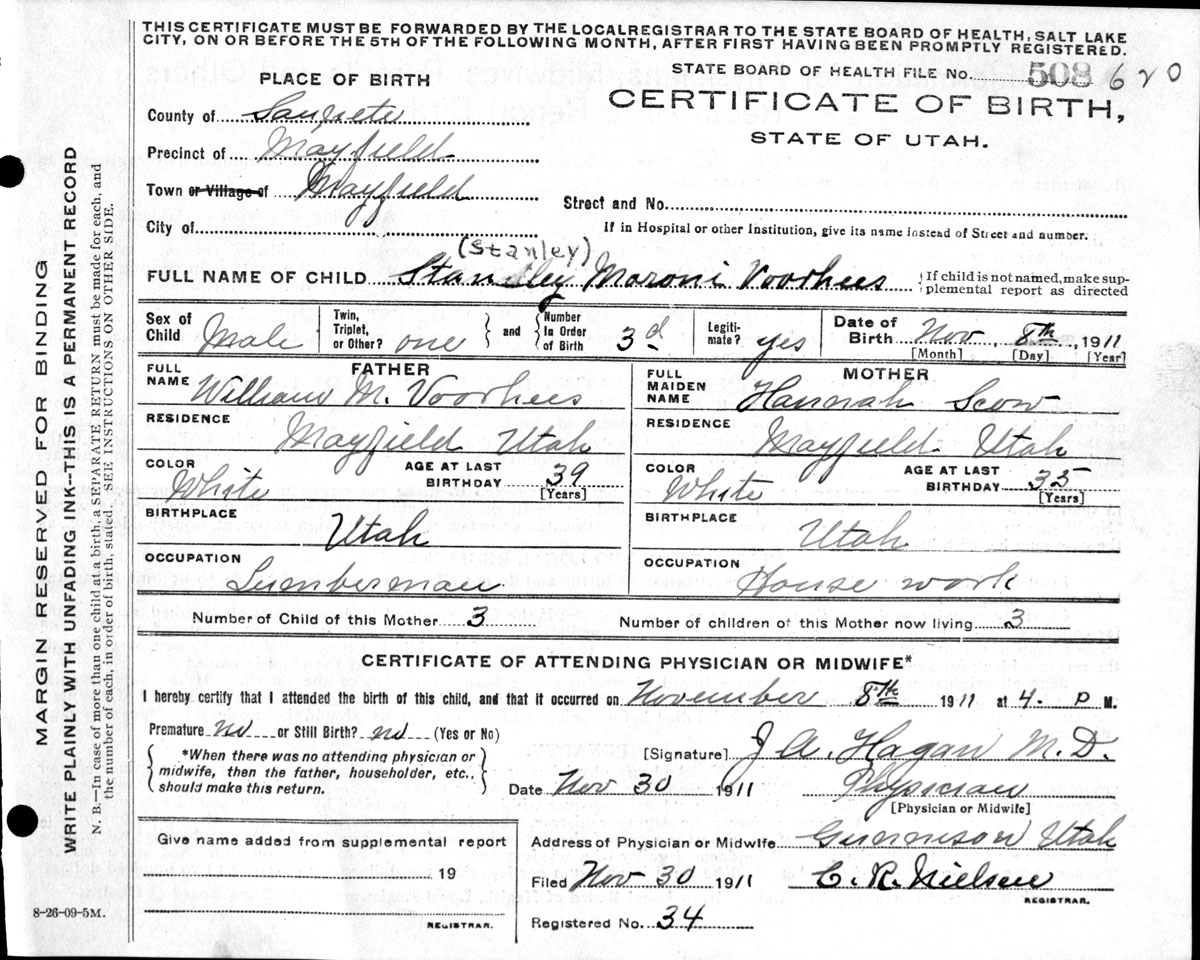 THIS CERTIFICATE MUST BE FORWARDED BY THE LOCAL REGISTRAR TO THE STATE BOARD OF HEALTH, SALT LAKE
CITY, ON OR BEFORE THE 5TH OF THE FOLLOWING MONTH, AFTER FIRST HAVING BEEN PROMPTLY REGISTERED.
STATE BOARD OF HEALTH FILE No. 508 620
PLACE OF BIRTH
CERTIFICATE OF BIRTH,
STATE OF UTAH.
County of Sanpete
Precinct of Mayfield
Town or Village of Mayfield
Street and No.
City of
If in Hospital or other Institution, give its name instead of Street and number.
(Stanley)
FULL NAME OF CHILD Standley Moroni Voorhees
If child is not named, make sup-
plemental report as directed
Sex of Child Male
Twin, Triplet, or Other? one
and Number In Order of Birth 3d
Legiti-mate? yes
Date of Birth Nov 8th, 1911
[Month] [Day] [Year]
FATHER
FULL NAME William M. Voorhees
MOTHER
FULL MAIDEN NAME Hannah Scow
RESIDENCE Mayfield Utah
RESIDENCE Mayfield Utah
COLOR White
AGE AT LAST BIRTHDAY 39
[Years]
COLOR White
AGE AT LAST BIRTHDAY 35
[Years]
BIRTHPLACE Utah
BIRTHPLACE Utah
OCCUPATION Lumberman
OCCUPATION House work
Number of Child of this Mother 3
Number of children of this Mother now living 3
CERTIFICATE OF ATTENDING PHYSICIAN OR MIDWIFE*
I hereby certify that I attended the birth of this child, and that it occurred on November 8th 1911 at 4. P M.
Premature no or Still Birth? no (Yes or No)
*When there was no attending physician or
midwife, then the father, householder, etc.,
should make this return.
[Signature] J A. Hagan M.D.
Date Nov 30 1911 Physician
[Physician or Midwife]
Give name added from supplemental report
19
REGISTRAR.
Address of Physician or Midwife Gunnison Utah
Filed Nov 30 1911 C. R. Nielsen
REGISTRAR.
Registered No. 34
8-26-09-5M.
MARGIN RESERVED FOR BINDING
WRITE PLAINLY WITH UNFADING INK--THIS IS A PERMANENT RECORD
N. B.—In case of more than one child at a birth, a SEPARATE RETURN must be made for each, and
the number of each, in order of birth, stated. SEE INSTRUCTIONS ON OTHER SIDE.